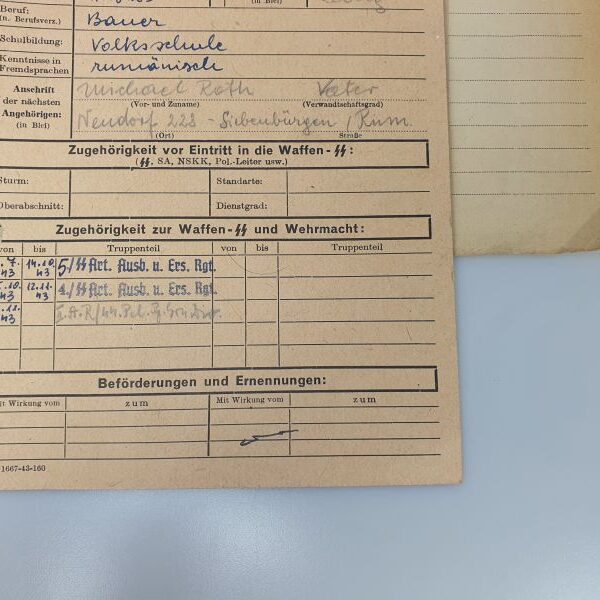 Beruf: Bauer
(u. Berufsverz.)
(in Blei)
Schulbildung: Volksschule
Kenntnisse in
Fremdsprachen rumänisch
Anschrift Michael Roth Vater
der nächsten (Vor- und Zuname) (Verwandtschaftsgrad)
Angehörigen: Neudorf 223 - Siebenbürgen / Rum.
(in Blei) (Ort) Straße
Zugehörigkeit vor Eintritt in die Waffen-SS:
(SS, SA, NSKK, Pol.-Leiter usw.)
Sturm: Standarte:
Oberabschnitt: Dienstgrad:
Zugehörigkeit zur Waffen-SS und Wehrmacht:
von bis Truppenteil von bis Truppenteil
7. 43 14.10. 43 5/SS Art. Ausb. u. Ers. Rgt.
10. 43 12.11. 43 4/SS Art. Ausb. u. Ers. Rgt.
11. 43
Beförderungen und Ernennungen:
Mit Wirkung vom zum Mit Wirkung vom zum
1667-43-160